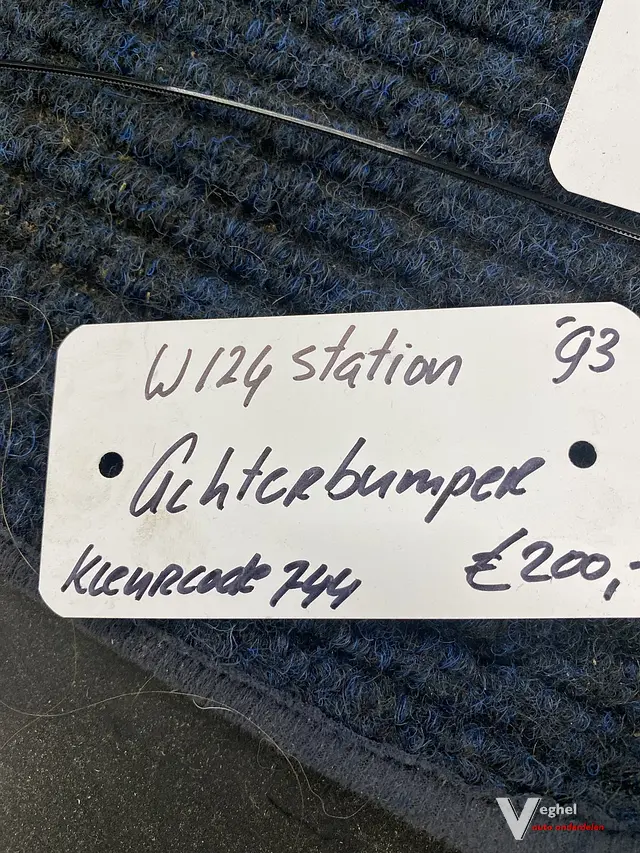 W124 station '93
Achterbumper
Kleurcode 744 €200,-
Veghel
auto onderdelen